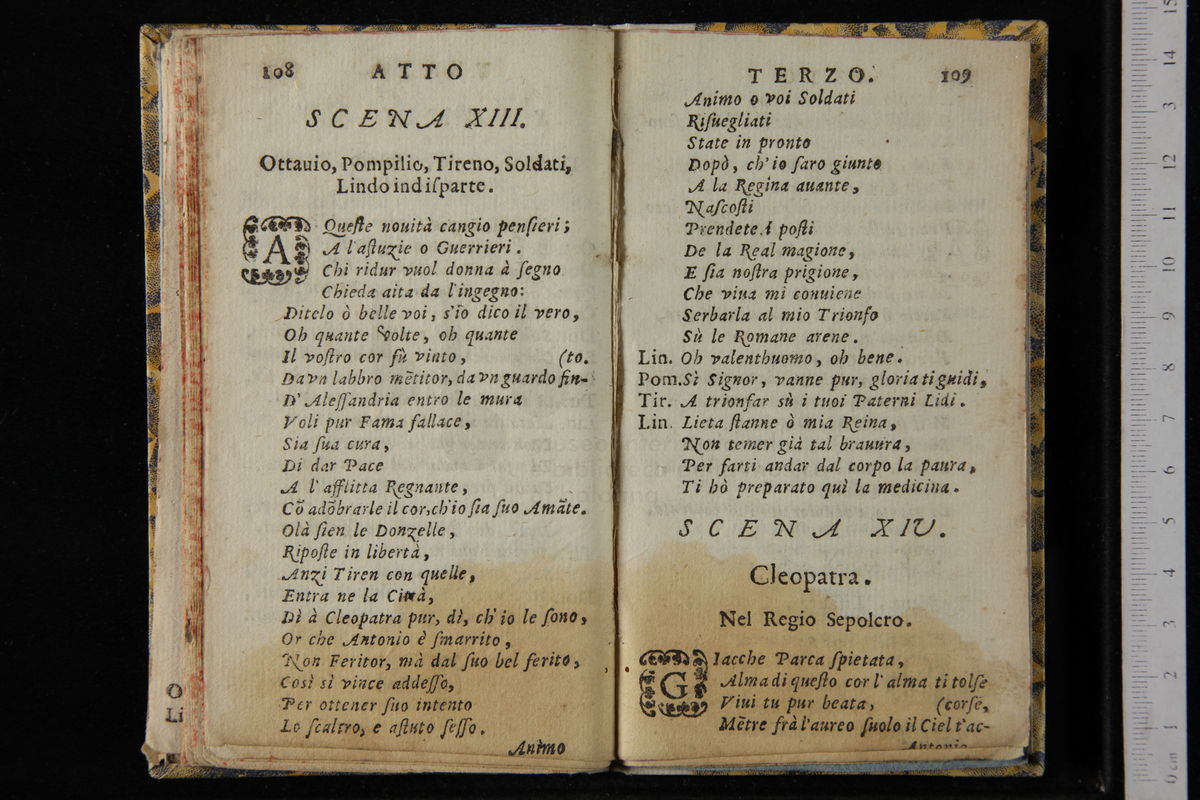 108 ATTO
SCENA XIII.
Ottauio, Pompilio, Tireno, Soldati,
Lindo indiſparte.
A Queſte nouità cangio penſieri;
A l'aſtuzie o Guerrieri.
Chi ridur vuol donna à ſegno
Chieda aita da l'ingegno:
Ditelo ò belle voi, s'io dico il vero,
Oh quante Volte, oh quante
Il voſtro cor fù vinto, (to.
Da vn labbro mētitor, da vn guardo fin-
D' Aleſſandria entro le mura
Voli pur Fama fallace,
Sia ſua cura,
Di dar Pace
A l' afflitta Regnante,
Cō adōbrarle il cor, ch'io ſia ſuo Amāte.
Olà ſien le Donzelle,
Ripoſte in libertà,
Anzi Tiren con quelle,
Entra ne la Città,
Dì à Cleopatra pur, dì, ch' io le ſono,
Or che Antonio è ſmarrito,
Non Feritor, mà dal ſuo bel ferito,
Così sì vince addeſſo,
Per ottener ſuo intento
Lo ſcaltro, e aſtuto ſeſſo.
Animo
TERZO. 109
Animo o voi Soldati
Riſuegliati
State in pronto
Dopò, ch' io ſaro giunto
A la Regina auante,
Naſcoſti
Prendete i poſti
De la Real magione,
E ſia noſtra prigione,
Che viua mi conuiene
Serbarla al mio Trionfo
Sù le Romane arene.
Lin. Oh valenthuomo, oh bene.
Pom. Sì Signor, vanne pur, gloria ti guidi,
Tir. A trionfar sù i tuoi Paterni Lidi.
Lin. Lieta ſtanne ò mia Reina,
Non temer già tal brauura,
Per farti andar dal corpo la paura,
Ti hò preparato quì la medicina.
SCENA XIV.
Cleopatra.
Nel Regio Sepolcro.
GIacche Parca ſpietata,
Alma di queſto cor l' alma ti tolſe
Viui tu pur beata, (corſe,
Mētre frà l'aureo ſuolo il Ciel t'ac-
Antonio
O
Li
0 cm 1 2 3 4 5 6 7 8 9 10 11 12 13 14 15